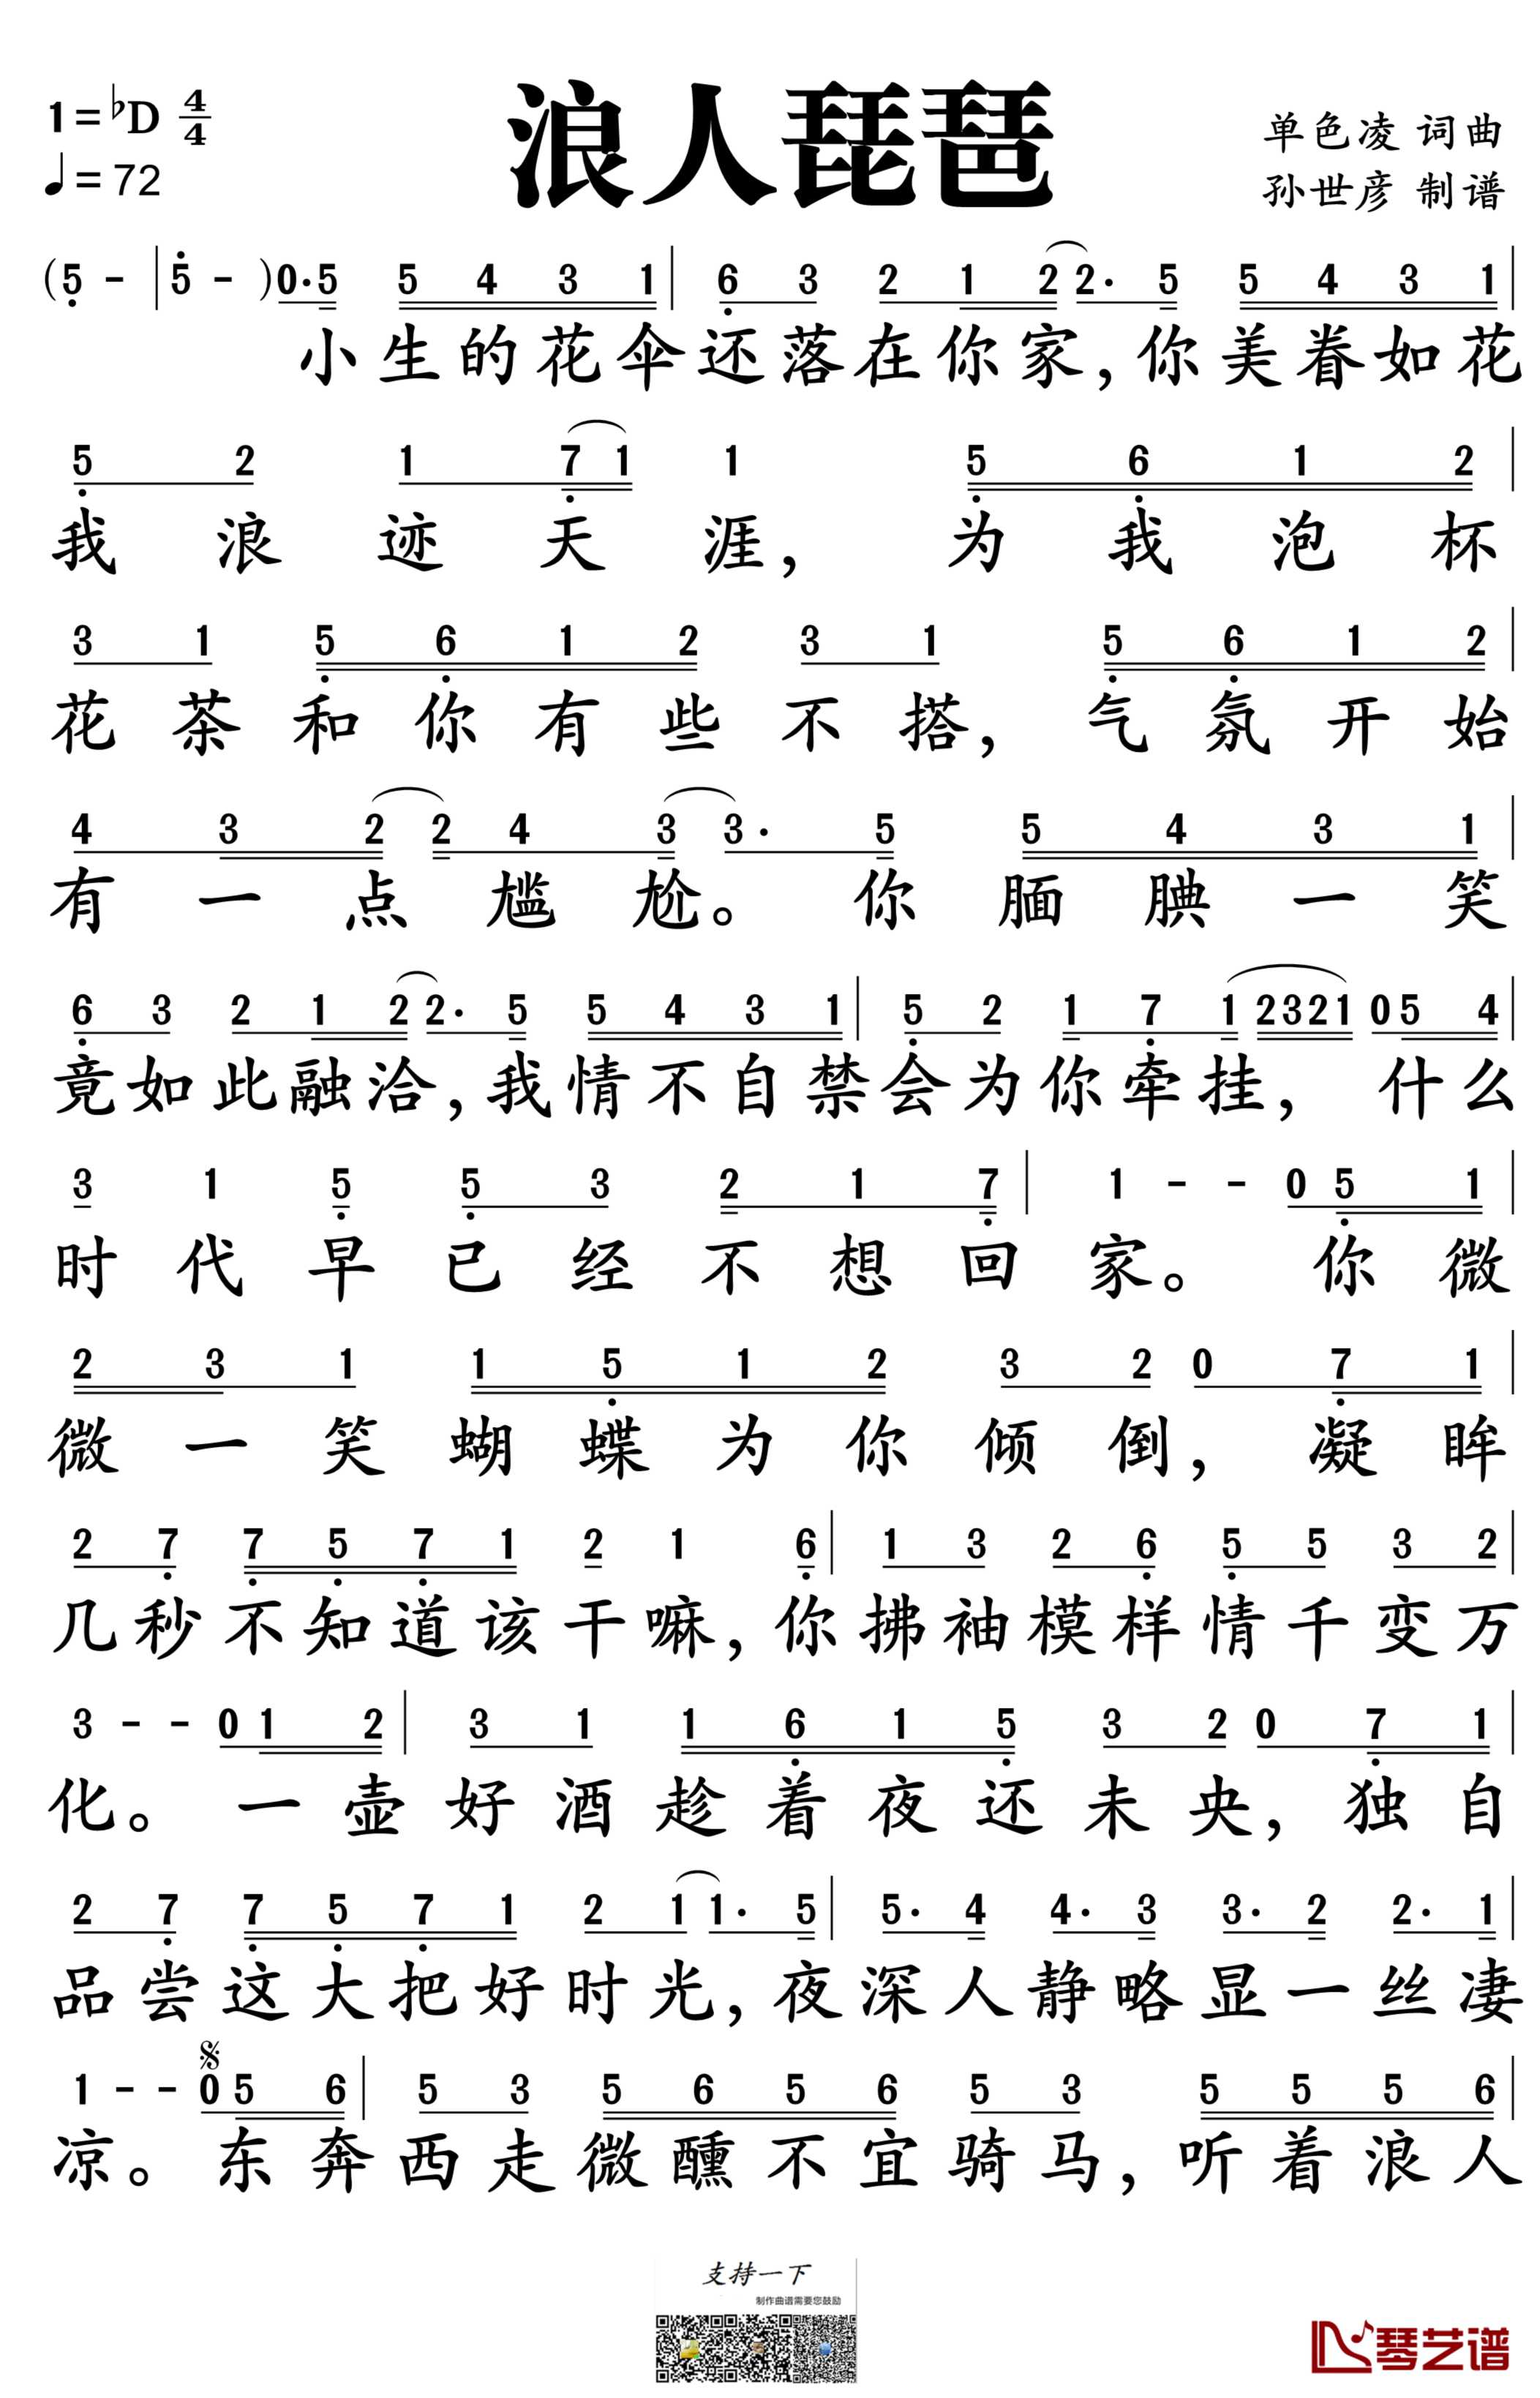 浪人琵琶
1=♭D 4/4
♩=72
单色凌 词曲
孙世彦 制谱
(5̣ - | 5̇ - ) 0·5 5 4 3 1 | 6̣ 3 2 1 2 2· 5 5 4 3 1 |
小生的花伞还落在你家,你美眷如花
5̣ 2 1 7̣ 1 1 5̣ 6̣ 1 2 |
我浪迹天涯,为我泡杯
3 1 5̣ 6̣ 1 2 3 1 5̣ 6̣ 1 2 |
花茶和你有些不搭,气氛开始
4 3 2 2 4 3 3· 5 5 4 3 1 |
有一点尴尬。你腼腆一笑
6̣ 3 2 1 2 2· 5 5 4 3 1 | 5̣ 2 1 7̣ 1 2321 0 5 4 |
竟如此融洽,我情不自禁会为你牵挂,什么
3 1 5̣ 5̣ 3 2 1 7̣ | 1 - - 0 5̣ 1 |
时代早已经不想回家。你微
2 3 1 1 5̣ 1 2 3 2 0 7̣ 1 |
微一笑蝴蝶为你倾倒,凝眸
2 7̣ 7̣ 5̣ 7̣ 1 2 1 6̣ | 1 3 2 6̣ 5̣ 5 3 2 |
几秒不知道该干嘛,你拂袖模样情千变万
3 - - 0 1 2 | 3 1 1 6̣ 1 5̣ 3 2 0 7̣ 1 |
化。一壶好酒趁着夜还未央,独自
2 7̣ 7̣ 5̣ 7̣ 1 2 1 1· 5 | 5· 4 4· 3 3· 2 2· 1 |
品尝这大把好时光,夜深人静略显一丝凄
1 - - 0 5 6 | 5 3 5 6 5 6 5 3 5 5 5 6 |
凉。东奔西走微醺不宜骑马,听着浪人
支持一下
制作曲谱需要您鼓励
琴艺谱